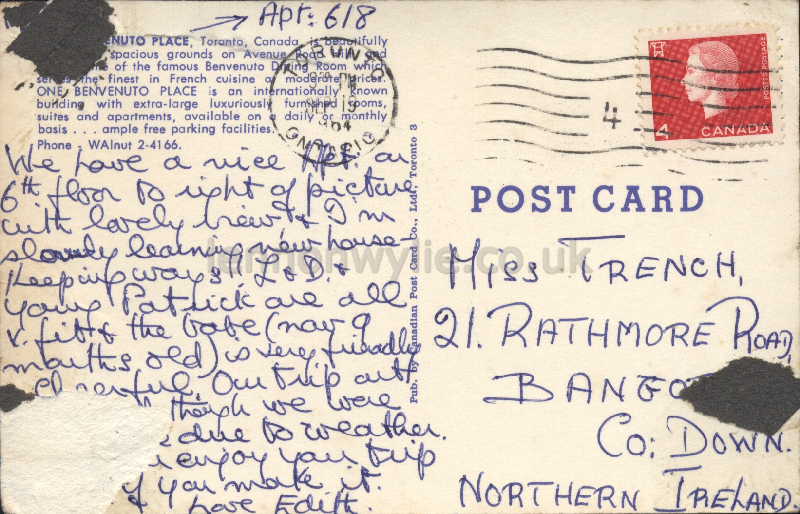 → Apt: 618
VENUTO PLACE, Toronto, Canada, is beautifully
spacious grounds on Avenue Road Hill and
one of the famous Benvenuto Dining Room which
serves the finest in French cuisine at moderate prices.
ONE BENVENUTO PLACE is an internationally known
building with extra-large luxuriously furnished rooms,
suites and apartments, available on a daily or monthly
basis . . . ample free parking facilities.
Phone: WAlnut 2-4166.
We have a nice Apt. on
6th floor to right of picture
with lovely view & I'm
slowly learning new house-
keeping ways. L & D. &
young Patrick are all
v. fit & the babe (now 9
months old) is very friendly
cheerful. Our trip out
though we were
due to weather.
enjoy your trip
if you make it.
love Edith.
Pub. by Canadian Post Card Co., Ltd., Toronto 3
TORONTO
PM
SEP 19
ONTARIO
4
4 CANADA
POSTES POSTAGE
POST CARD
Miss TRENCH,
21. RATHMORE ROAD,
BANGO
Co: DOWN.
NORTHERN IRELAND.
lennonwylie.co.uk